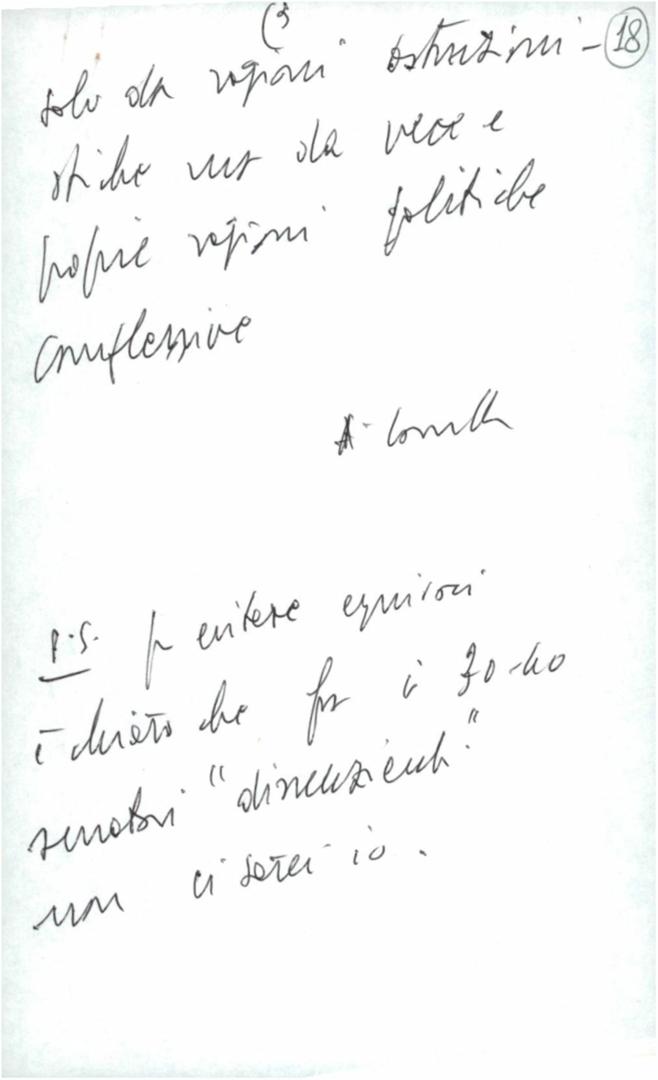 (3
18
solo da ragioni ostruzioni-
stiche ma da vere e
proprie ragioni politiche
complessive
A.
P.S. per evitare equivoci
è chiaro che fra i 30-40
senatori "dissenzienti"
non ci sarei io.